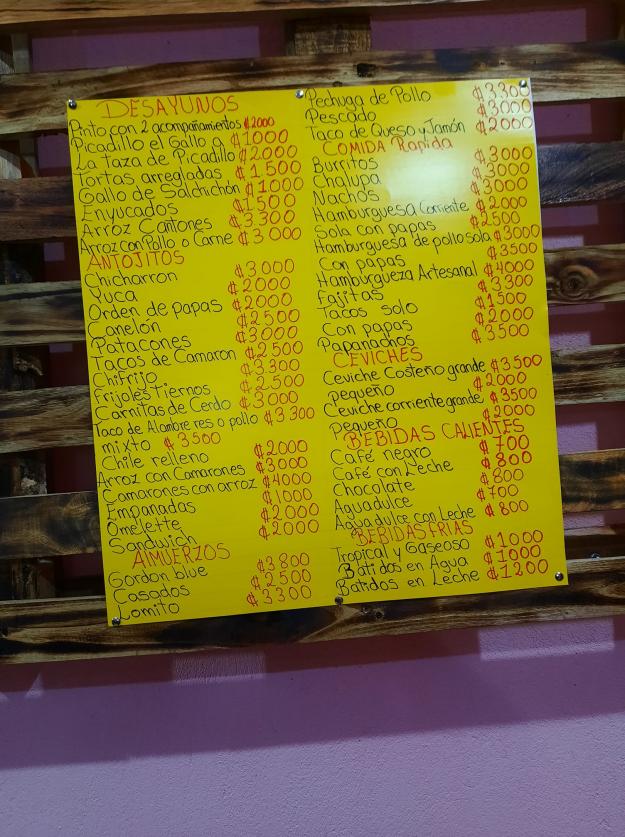 DESAYUNOS
Pinto con 2 acompañamientos ₡2000
Picadillo el Gallo a ₡1000
La taza de Picadillo ₡2000
Tortas arregladas ₡1500
Gallo de Salchichón ₡1000
Enyucados ₡1500
Arroz Cantones ₡3300
Arroz con Pollo o Carne ₡3000
ANTOJITOS
Chicharron ₡3000
Yuca ₡2000
Orden de Papas ₡2000
Canelón ₡2500
Patacones ₡3000
Tacos de Camaron ₡2500
Chifrijo ₡3300
Frijoles Tiernos ₡2500
Carnitas de Cerdo ₡3000
Taco de Alambre res o pollo ₡3300
mixto ₡3500
Chile relleno ₡2000
Arroz con Camarones ₡3000
Camarones con arroz ₡4000
Empanadas ₡1000
Omelette ₡2000
Sandwich ₡2000
AlMUERZOS
Gordon blue ₡3800
Casados ₡2500
Lomito ₡3300
Pechuga de Pollo ₡3300
Pescado ₡3000
Taco de Queso y Jamón ₡2000
COMIDA Rapida
Burritos ₡3000
Chalupa ₡3000
Nachos ₡3000
Hamburguesa Corriente ₡2000
Sola con papas ₡2500
Hamburguesa de pollo sola ₡3000
Con papas ₡3500
Hamburgueza Artesanal ₡4000
Fajitas ₡3300
Tacos solo ₡1500
Con papas ₡2000
Papanachos ₡3500
CEVICHES
Ceviche Costeño grande ₡3500
pequeño ₡2000
Ceviche corriente grande ₡3500
pequeño ₡2000
BEBIDAS CALIENTES
Café negro ₡700
Café con Leche ₡800
Chocolate ₡800
Aguadulce ₡700
Aguadulce con Leche ₡800
BEBIDAS FRIAS
Tropical y Gaseoso ₡1000
Batidos en Agua ₡1000
Batidos en Leche ₡1200